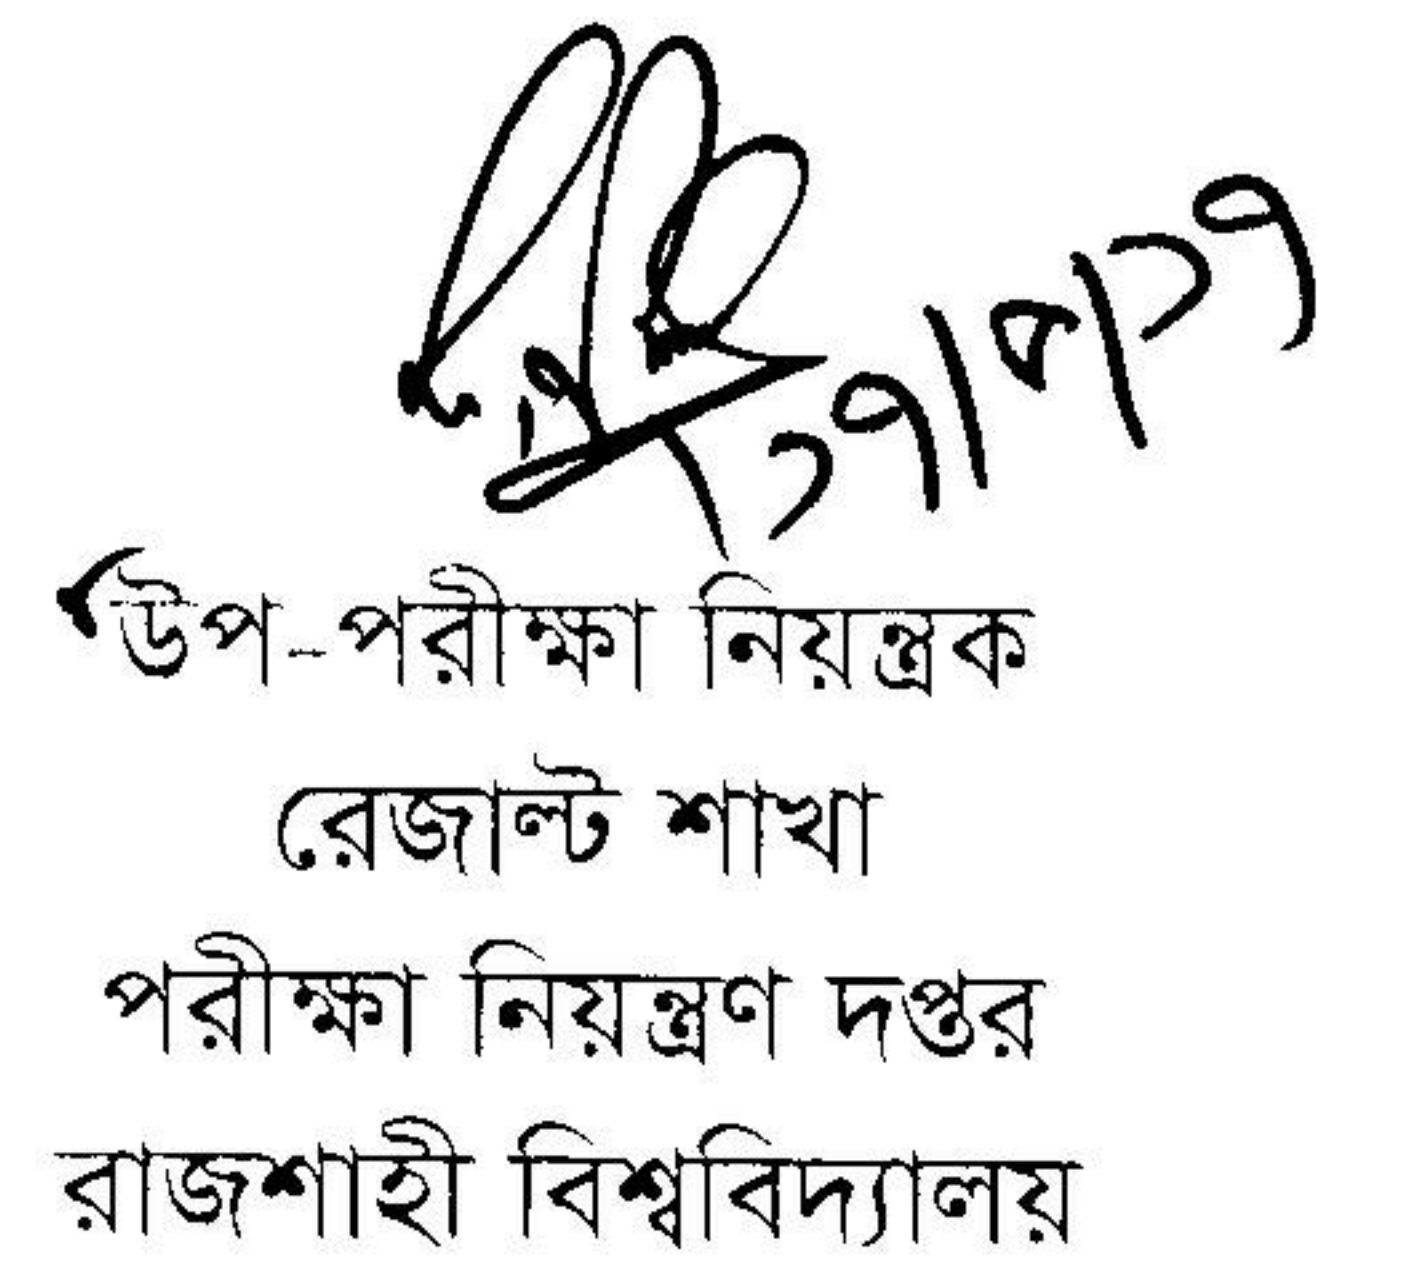 ২৭/৮/২৭
উপ-পরীক্ষা নিয়ন্ত্রক
রেজাল্ট শাখা
পরীক্ষা নিয়ন্ত্রণ দপ্তর
রাজশাহী বিশ্ববিদ্যালয়